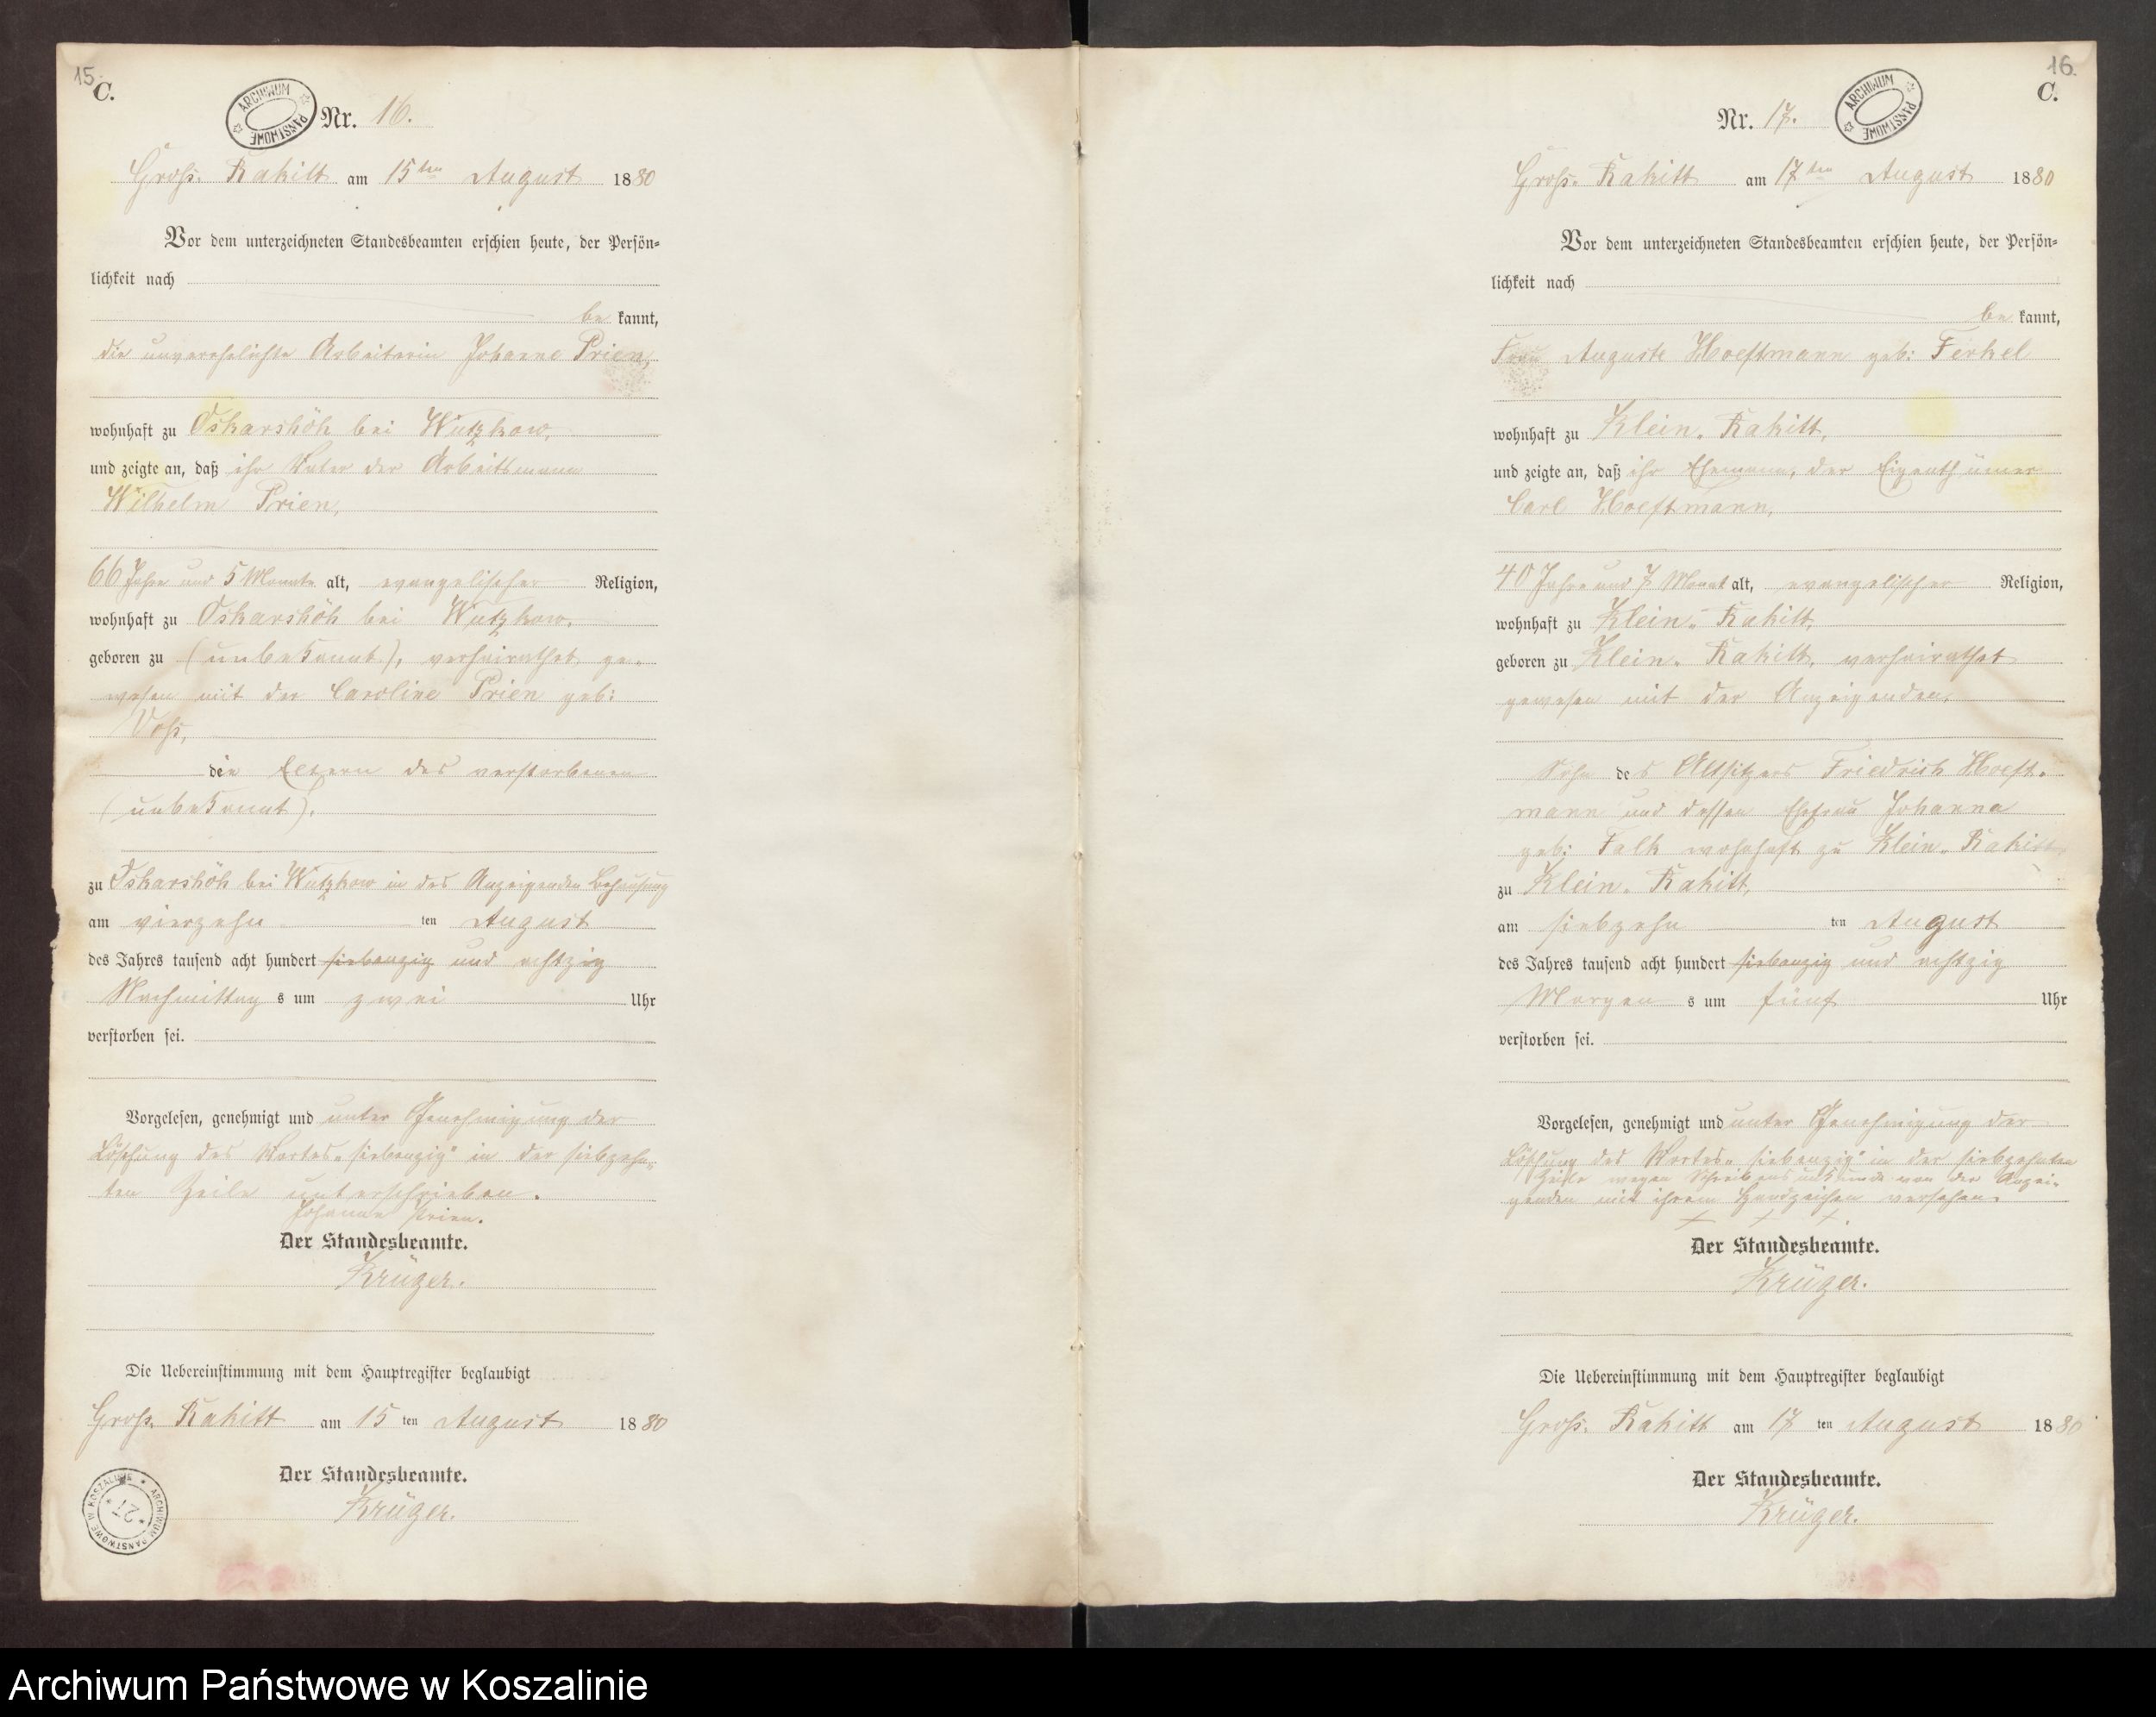 15.
C.
ARCHIWUM PAŃSTWOWE
Nr. 16.
Gross. Rakitt am 15ten August 1880
Vor dem unterzeichneten Standesbeamten erschien heute, der Persön=
lichkeit nach
be kannt,
die unverehelichte Arbeiterin Johanne Prien,
wohnhaft zu Oskarshöh bei Wutzkow,
und zeigte an, daß ihr Vater der Arbeitsmann
Wilhelm Prien,
66 Jahre und 5 Monate alt, evangelischer Religion,
wohnhaft zu Oskarshöh bei Wutzkow,
geboren zu (unbekannt), verheirathet ge-
wesen mit der Caroline Prien geb:
Voss,
die Eltern des verstorbenen
(unbekannt).
zu Oskarshöh bei Wutzkow in des Anzeigenden Behausung
am vierzehn ten August
des Jahres tausend acht hundert siebenzig und achtzig
Nachmittag s um zwei Uhr
verstorben sei.
Vorgelesen, genehmigt und unter Genehmigung der
Löschung des Wortes „siebenzig" in der siebzehn-
ten Zeile unterschrieben.
Johanne Prien.
Der Standesbeamte.
Krüger.
Die Uebereinstimmung mit dem Hauptregister beglaubigt
Gross. Rakitt am 15 ten August 1880
Der Standesbeamte.
Krüger.
ARCHIWUM PAŃSTWOWE W KOSZALINIE
27
16.
C.
Nr. 17.
ARCHIWUM PAŃSTWOWE
Gross. Rakitt am 17ten August 1880
Vor dem unterzeichneten Standesbeamten erschien heute, der Persön=
lichkeit nach
be kannt,
Frau Auguste Hoeftmann geb: Ferkel
wohnhaft zu Klein. Rakitt,
und zeigte an, daß ihr Ehemann, der Eigenthümer
Carl Hoeftmann,
40 Jahre und 7 Monat alt, evangelischer Religion,
wohnhaft zu Klein. Rakitt,
geboren zu Klein. Rakitt, verheirathet
gewesen mit der Anzeigenden,
Sohn des Altsitzers Friedrich Hoeft-
mann und dessen Ehefrau Johanna
geb: Falk wohnhaft zu Klein. Rakitt
zu Klein. Rakitt,
am siebzehn ten August
des Jahres tausend acht hundert siebenzig und achtzig
Morgen s um fünf Uhr
verstorben sei.
Vorgelesen, genehmigt und unter Genehmigung der
Löschung des Wortes „siebenzig" in der siebzehnten
Zeile wegen Schreibensunkunde von der Anzei-
genden mit ihrem Handzeichen versehen.
+ + +.
Der Standesbeamte.
Krüger.
Die Uebereinstimmung mit dem Hauptregister beglaubigt
Gross. Rakitt am 17 ten August 1880
Der Standesbeamte.
Krüger.
Archiwum Państwowe w Koszalinie